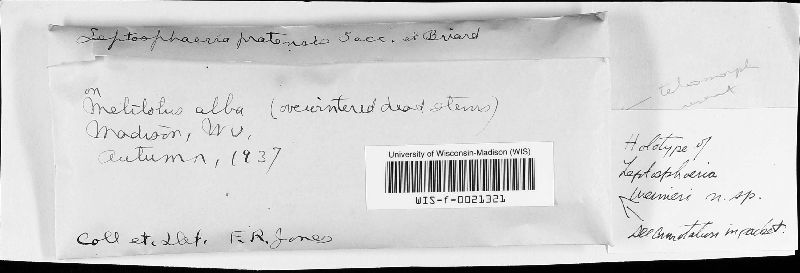 Leptosphaeria pratensis Sacc. et Briard
on
Melilotus alba (overwintered dead stems)
Madison, Wv.
Autumn, 1937
University of Wisconsin-Madison (WIS)
WIS-f-0021321
Coll et. Det. F. R. Jones
teleomorph
Holotype of
Leptosphaeria
weimeri n. sp.
See annotation in packet.